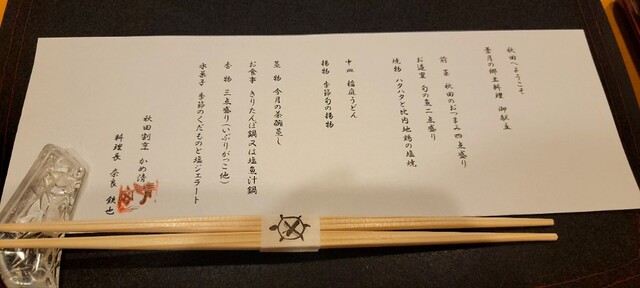 秋田へようこそ
蒼月の郷土料理 御献立
前菜 秋田のおつまみ四点盛り
お造里 旬の魚二点盛り
焼物 ハタハタと比内地鶏の塩焼
中皿 稲庭うどん
揚物 季節旬の揚物
蒸物 今月の茶碗蒸し
お食事 きりたんぽ鍋又は塩魚汁鍋
香物 三点盛り(いぶりがっこ他)
水菓子 季節のくだものと塩ジェラート
秋田割烹 かめ清
料理長 奈良 鉄也